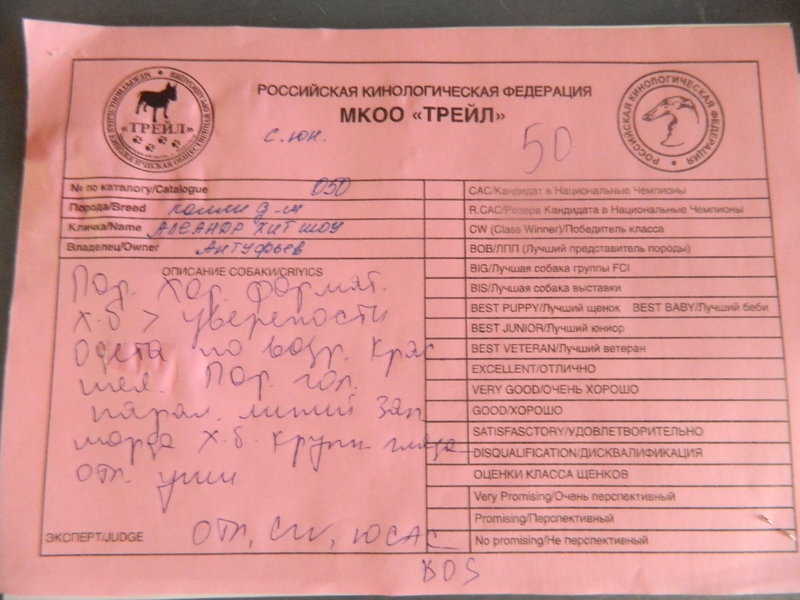 РОССИЙСКАЯ КИНОЛОГИЧЕСКАЯ ФЕДЕРАЦИЯ
МКОО «ТРЕЙЛ»
«ТРЕЙЛ»
РОССИЙСКАЯ КИНОЛОГИЧЕСКАЯ ФЕДЕРАЦИЯ
с. юн.
50
№ по каталогу/Catalogue 050
Порода/Breed колли д-ш
Кличка/Name АЛЕАНДР ХИТ ШОУ
Владелец/Owner АНТУФЬЕВ
ОПИСАНИЕ СОБАКИ/CRIYICS
Пор. хор. формат.
Х.б > уверености
Одета по возр. Крас
шея. Пор. гол.
парал. линий Зап
морда х.б. крупн глаза
отл уши
ЭКСПЕРТ/JUDGE
ОТЛ, CW, ЮСАС
BOS
CAC/Кандидат в Национальные Чемпионы
R.CAC/Резерв Кандидата в Национальные Чемпионы
CW (Class Winner)/Победитель класса
BOB/ЛПП (Лучший представитель породы)
BIG/Лучшая собака группы FCI
BIS/Лучшая собака выставки
BEST PUPPY/Лучший щенок BEST BABY/Лучший беби
BEST JUNIOR/Лучший юниор
BEST VETERAN/Лучший ветеран
EXCELLENT/ОТЛИЧНО
VERY GOOD/ОЧЕНЬ ХОРОШО
GOOD/ХОРОШО
SATISFASCTORY/УДОВЛЕТВОРИТЕЛЬНО
DISQUALIFICATION/ДИСКВАЛИФИКАЦИЯ
ОЦЕНКИ КЛАССА ЩЕНКОВ
Very Promising/Очень перспективный
Promising/Перспективный
No promising/Не перспективный